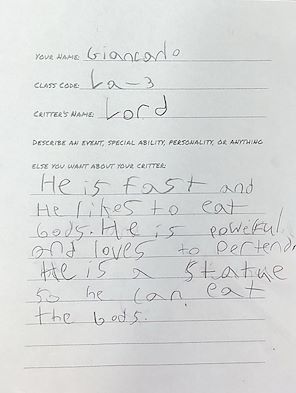 YOUR NAME: Giancarlo
CLASS CODE: La-3
CRITTER'S NAME: Lord
DESCRIBE AN EVENT, SPECIAL ABILITY, PERSONALITY, OR ANYTHING
ELSE YOU WANT ABOUT YOUR CRITTER:
He is fast and
He likes to eat
bods. He is powerful
and loves to pertend
He is a statue
so he can eat
the bods.